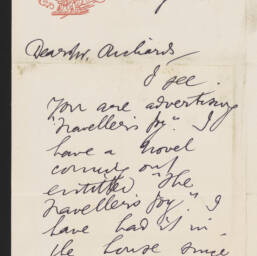 Dear Mr. Richards
I see
You are advertising
"Travellers Joy." I
have a novel
coming out
entitled "The
Travellers Joy." I
have had it in
the house since